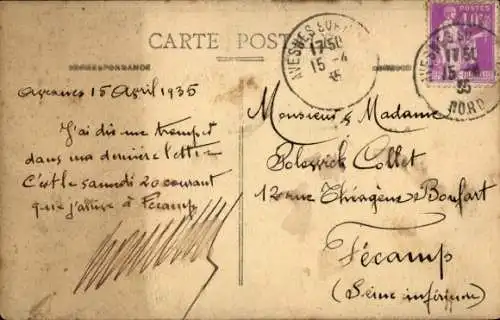 CARTE POST
CORRESPONDANCE
AVESNES SUR
17 50
15 - 4
35
POSTES
AVESNES SUR
17 50
15 - 4
35
NORD
Avesnes 15 Avril 1935
J'ai dû me tromper
dans ma dernière lettre
C'est le samedi 20 courant
que j'arrive à Fécamp
Monsieur & Madame
Collet
12 rue Théagène Boufart
Fécamp
(Seine inférieure)